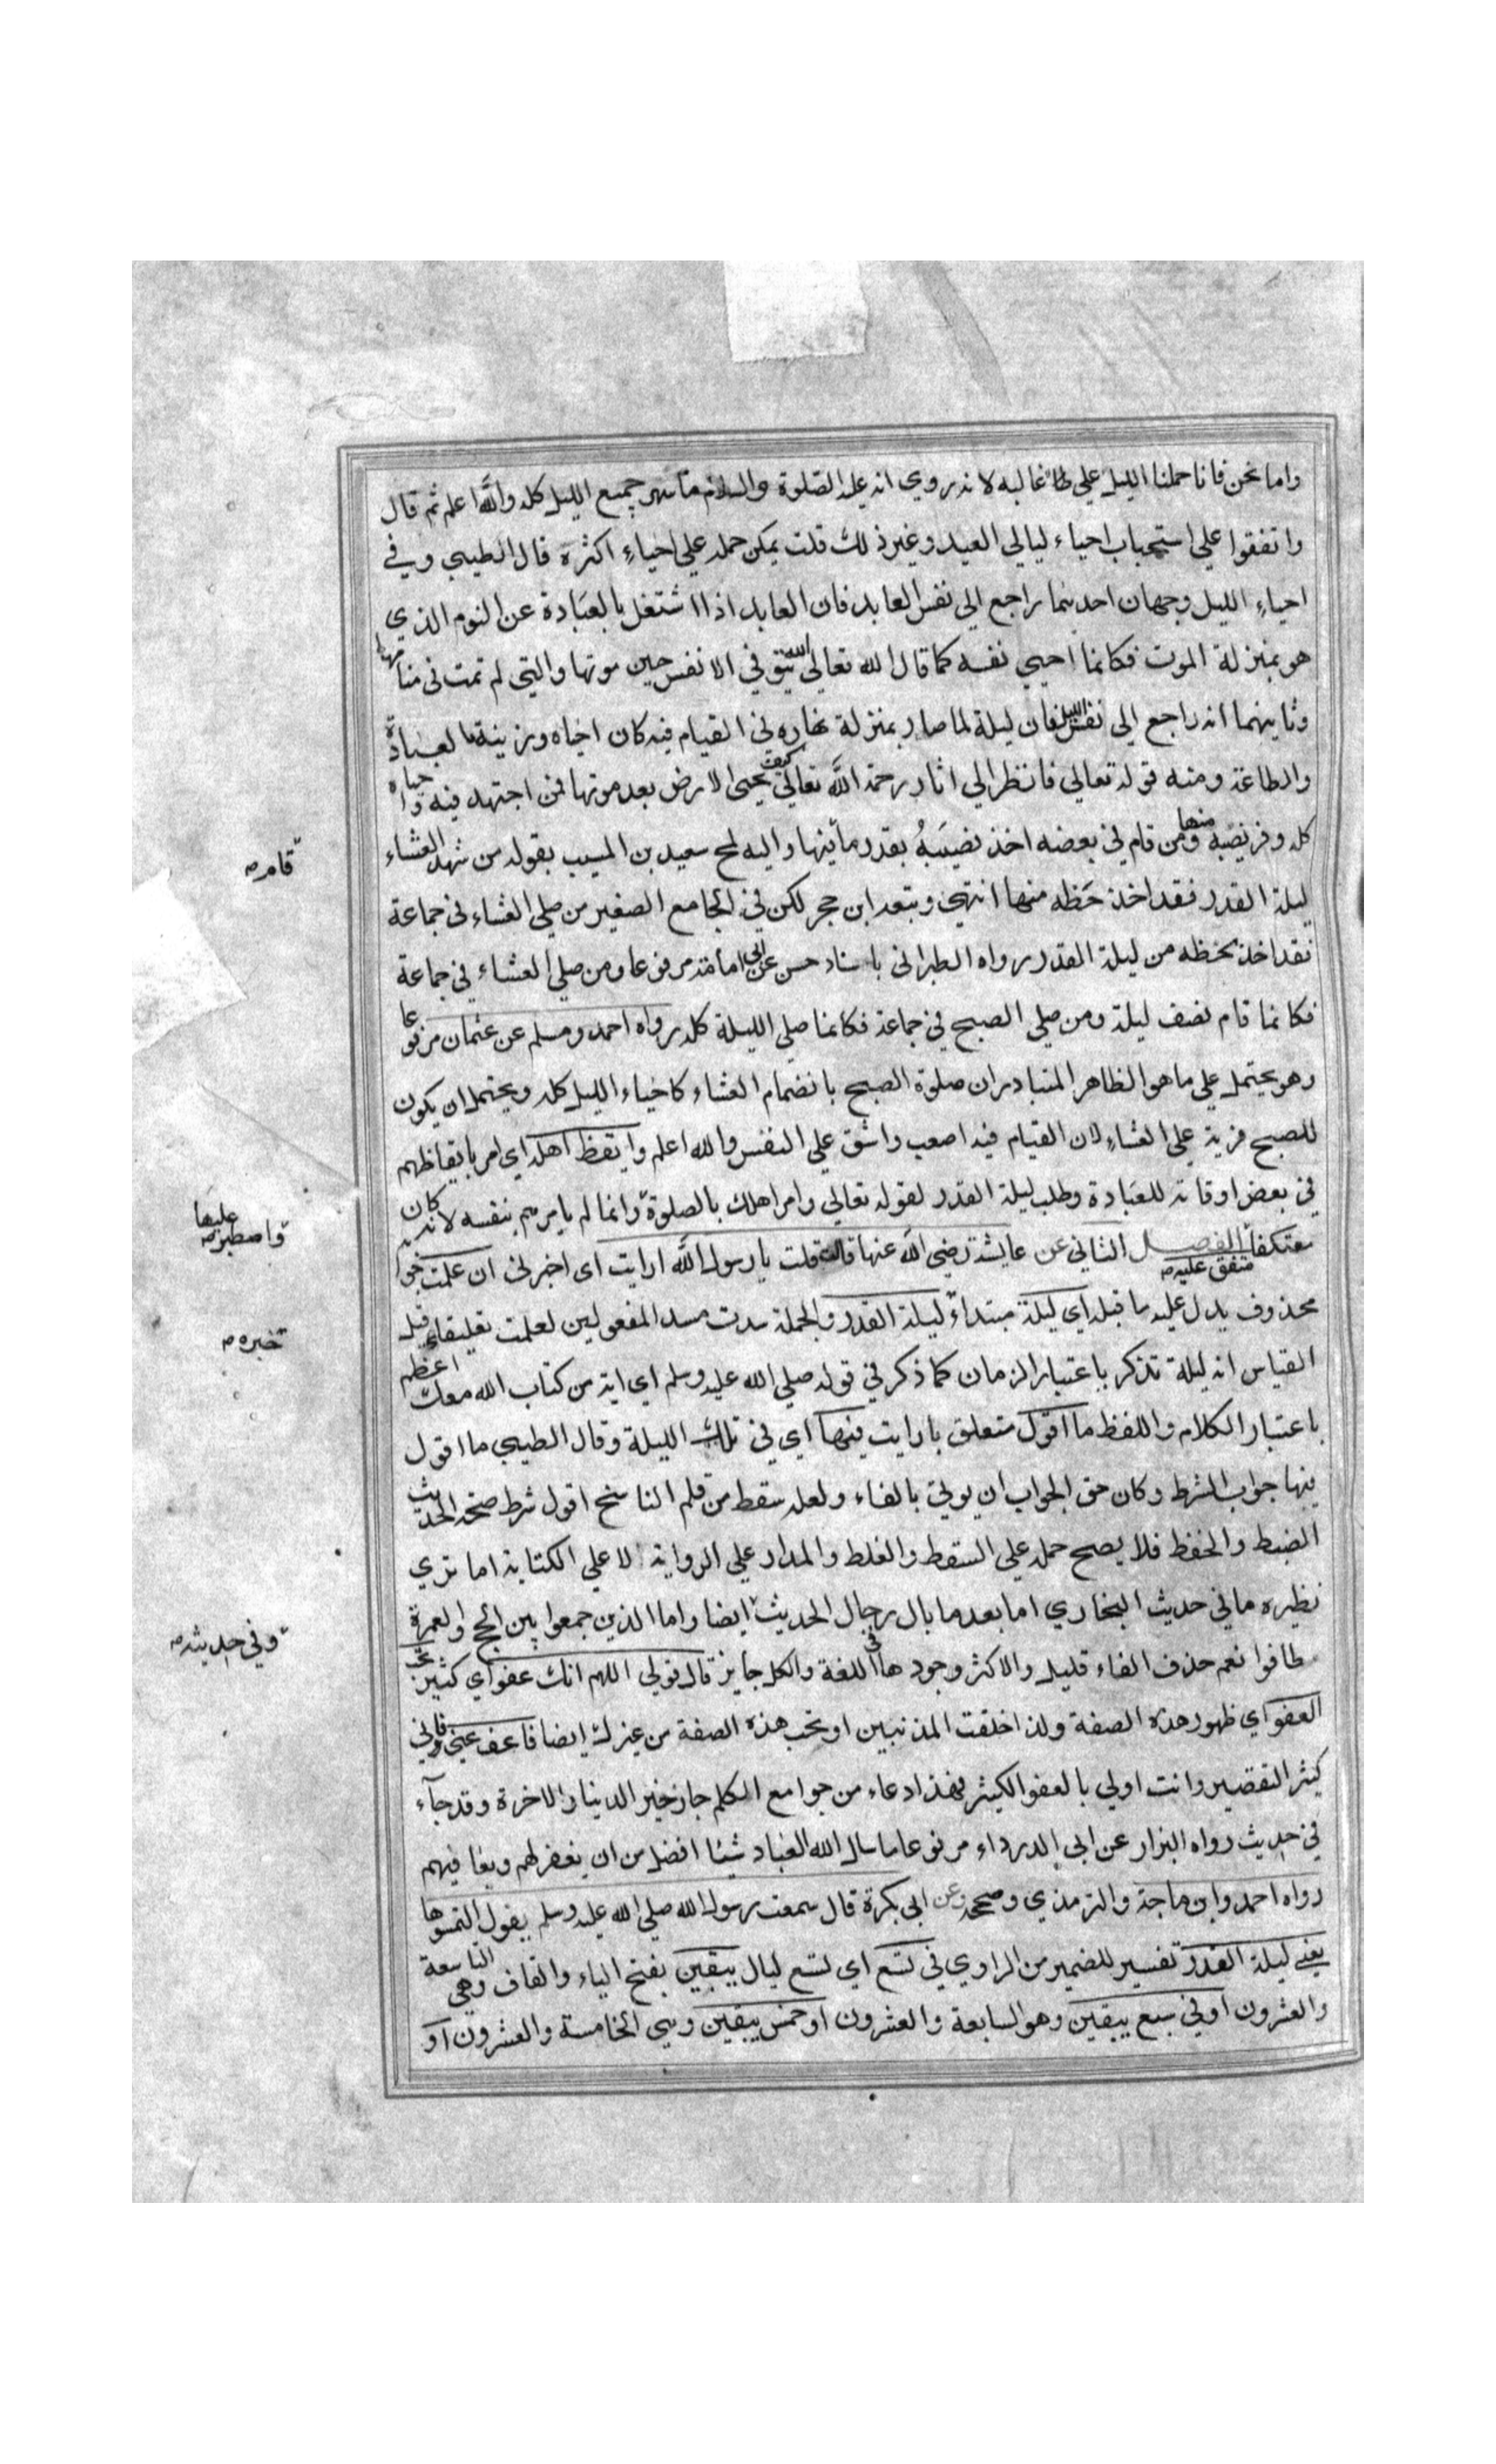 واما نحن فانا حملنا الليل على غالبه لانه روي انه عليه الصلوة والسلام ما سهر جميع الليل كله والله اعلم ثم قال
واتفقوا علي استحباب احياء ليالي العيد وغير ذلك قلت يمكن حمله علي احياء اكثره قال الطيبي وفي
احياء الليل وجهان احدهما راجع الي نفس العابد فان العابد اذا اشتغل بالعبادة عن النوم الذي
هو بمنزلة الموت فكانما احيي نفسه كما قال الله تعالي الله يتوفي الانفس حين موتها والتي لم تمت في منامها
وثانيهما انه راجع الي نفس الليل فان ليلة لما صار بمنزلة نهاره في القيام فيه كان احياه وزينه بالعبادة
والطاعة ومنه قوله تعالي فانظر الي اثار رحمة الله تعالي كيف يحيى الارض بعد موتها فمن اجتهد فيه واحياه
كله وفر نصبه منها ومن قام في بعضه اخذ نصيبه بقدر ما فيها واليه لمح سعيد بن المسيب بقوله من شهد العشاء
ليلة القدر فقد اخذ حظه منها انتهي وتبعه ابن حجر لكن في الجامع الصغير من صلي العشاء في جماعة
فقد اخذ بحظه من ليلة القدر رواه الطبراني باسناد حسن عن ابي امامة مرفوعا ومن صلي العشاء في جماعة
فكانما قام نصف ليلة ومن صلي الصبح في جماعة فكانما صلي الليلة كله رواه احمد ومسلم عن عثمان مرفوعا
وهو يحتمل علي ما هو الظاهر المتبادر ان صلوة الصبح بانضمام العشاء كاحياء الليل كله ويحتمل ان يكون
للصبح مزية علي العشاء لان القيام فيه اصعب واشق علي النفس والله اعلم وايقظ اهله اي امر بايقاظهم
في بعض اوقاته للعبادة وطلب ليلة القدر لقوله تعالي وامر اهلك بالصلوة وانما لم يامرهم بنفسه لانه كان
معتكفا متفق عليه الفصل الثاني عن عايشة رضي الله عنها قالت قلت يا رسول الله ارايت اي اخبرني ان علمت جوابه
محذوف يدل عليه ما قبله اي ليلة مبتداء ليلة القدر والجملة سدت مسد المفعولين لعلمت تعليقا قيل
القياس انه ليلة تذكر باعتبار الزمان كما ذكر في قوله صلي الله عليه وسلم اي اية من كتاب الله معك اعظم
باعتبار الكلام واللفظ ما اقول متعلق بارايت فيها اي في تلك الليلة وقال الطيبي ما اقول
فيها جواب الشرط وكان حق الجواب ان يوتي بالفاء ولعله سقط من قلم الناسخ اقول شرط صحة الحديث
الضبط والحفظ فلا يصح حمله علي السقط والغلط والمدار علي الرواية لا علي الكتابة اما تري
نظيره ما في حديث البخاري اما بعد ما بال رجال الحديث ايضا واما الذين جمعوا بين الحج والعمرة
طافوا نعم حذف الفاء قليل والاكثر وجودها في اللغة والكل جايز قال قولي اللهم انك عفو اي كثير تحب
العفو اي ظهور هذه الصفة ولذا خلقت المذنبين او تحب هذه الصفة من غيرك ايضا فاعف عني فاني
كثير التقصير وانت اولي بالعفو الكثير فهذا دعاء من جوامع الكلم حاز خير الدنيا والاخرة وقد جآء
في حديث رواه البزار عن ابي الدرداء مرفوعا ما سال الله العباد شيئا افضل من ان يغفر لهم ويعافيهم
رواه احمد وابن ماجة والترمذي وصححه وعن ابي بكرة قال سمعت رسول الله صلي الله عليه وسلم يقول التمسوها
يعني ليلة القدر تفسير للضمير من الراوي في تسع اي تسع ليال يبقين بفتح الياء والقاف وهي التاسعة
والعشرون او في سبع يبقين وهو السابعة والعشرون او خمس يبقين وهي الخامسة والعشرون او
قام
واصطبر عليها
خبره
وفي حديثه